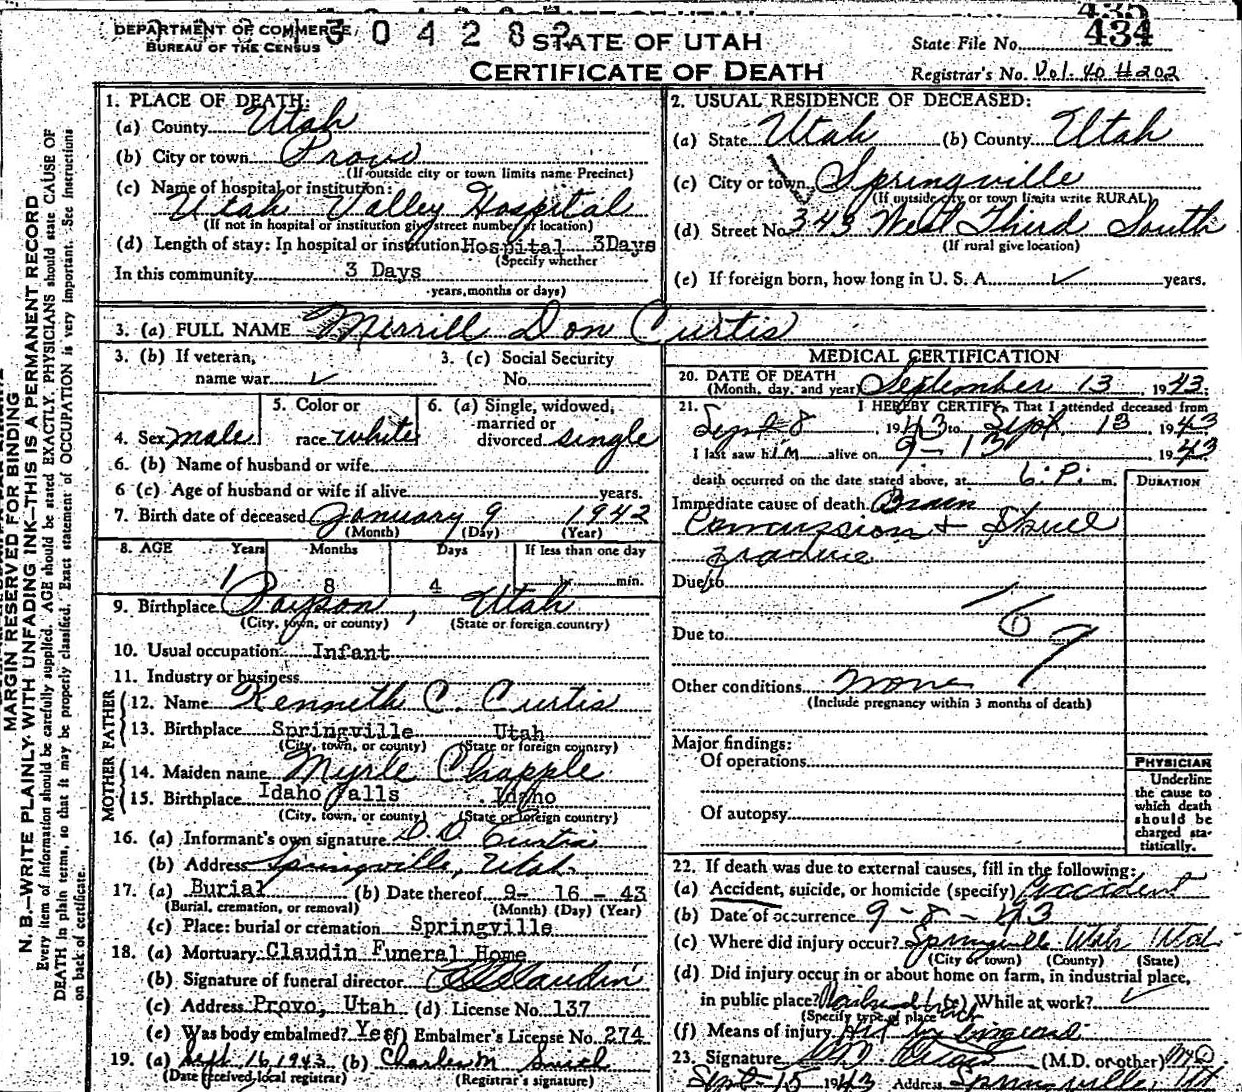 DEPARTMENT OF COMMERCE
BUREAU OF THE CENSUS
STATE OF UTAH
CERTIFICATE OF DEATH
State File No. 434
Registrar's No. Vol. 40 #202
MARGIN RESERVED FOR BINDING
N. B.—WRITE PLAINLY WITH UNFADING INK—THIS IS A PERMANENT RECORD
Every item of information should be carefully supplied. AGE should be stated EXACTLY. PHYSICIANS should state CAUSE OF
DEATH in plain terms, so that it may be properly classified. Exact statement of OCCUPATION is very important. See instructions
on back of certificate.
1. PLACE OF DEATH:
(a) County Utah
(b) City or town Provo
(If outside city or town limits name Precinct)
(c) Name of hospital or institution:
Utah Valley Hospital
(If not in hospital or institution give street number or location)
(d) Length of stay: In hospital or institution Hospital 3Days
(Specify whether
In this community 3 Days
years, months or days)
2. USUAL RESIDENCE OF DECEASED:
(a) State Utah (b) County Utah
(c) City or town Springville
(If outside city or town limits write RURAL)
(d) Street No. 343 West Third South
(If rural give location)
(e) If foreign born, how long in U. S. A. years.
3. (a) FULL NAME Merrill Don Curtis
3. (b) If veteran, name war
3. (c) Social Security No.
4. Sex male
5. Color or race white
6. (a) Single, widowed, married or divorced single
6. (b) Name of husband or wife
6 (c) Age of husband or wife if alive years.
7. Birth date of deceased January 9 1942
(Month) (Day) (Year)
8. AGE Years Months Days If less than one day
1 8 4 hr. min.
9. Birthplace Payson, Utah
(City, town, or county) (State or foreign country)
10. Usual occupation Infant
11. Industry or business
FATHER
12. Name Kenneth C. Curtis
13. Birthplace Springville Utah
(City, town, or county) (State or foreign country)
MOTHER
14. Maiden name Myrle Chapple
15. Birthplace Idaho Falls Idaho
(City, town, or county) (State or foreign country)
16. (a) Informant's own signature D. D. Curtis
(b) Address Springville, Utah.
17. (a) Burial (b) Date thereof 9- 16 - 43
(Burial, cremation, or removal) (Month) (Day) (Year)
(c) Place: burial or cremation Springville
18. (a) Mortuary Claudin Funeral Home
(b) Signature of funeral director Claudin
(c) Address Provo, Utah (d) License No. 137
(e) Was body embalmed? Yes (f) Embalmer's License No. 274
19. (a) Sept. 16, 1943 (b) Charles M Smith
(Date received local registrar) (Registrar's signature)
MEDICAL CERTIFICATION
20. DATE OF DEATH
(Month, day, and year) September 13, 1943.
21. I HEREBY CERTIFY, That I attended deceased from
Sept 8 1943 to Sept 13 1943
I last saw him alive on 9-13 1943
death occurred on the date stated above, at 6. P. m.
DURATION
Immediate cause of death Brain
Concussion + Skull
fracture
Due to
Due to
Other conditions none
(Include pregnancy within 3 months of death)
Major findings:
Of operations
Of autopsy
PHYSICIAN
Underline
the cause to
which death
should be
charged sta-
tistically.
22. If death was due to external causes, fill in the following:
(a) Accident, suicide, or homicide (specify) Accident
(b) Date of occurrence 9-8-43
(c) Where did injury occur? Springville Utah Utah
(City or town) (County) (State)
(d) Did injury occur in or about home on farm, in industrial place,
in public place? Railroad track (e) While at work?
(Specify type of place
(f) Means of injury Hit by
23. Signature (M.D. or other) M.D.
Sept 15 1943 Address Springville Ut